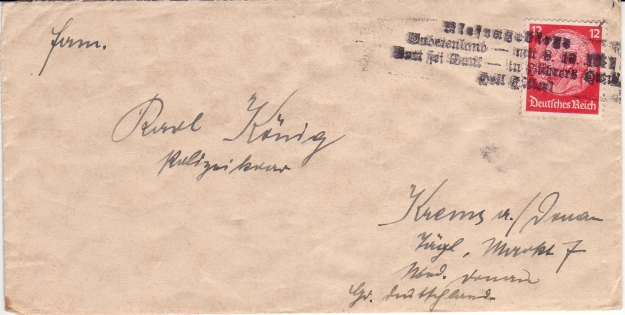 Herrn.
Riesengebirge
Sudetenland — 8. 10.
Gott sei Dank — in Führers
Heil
12 12
Deutsches Reich
Karl König
Krems a./Donau
Tägl. Markt 7
Nied. Donau
Gr. Deutschland.